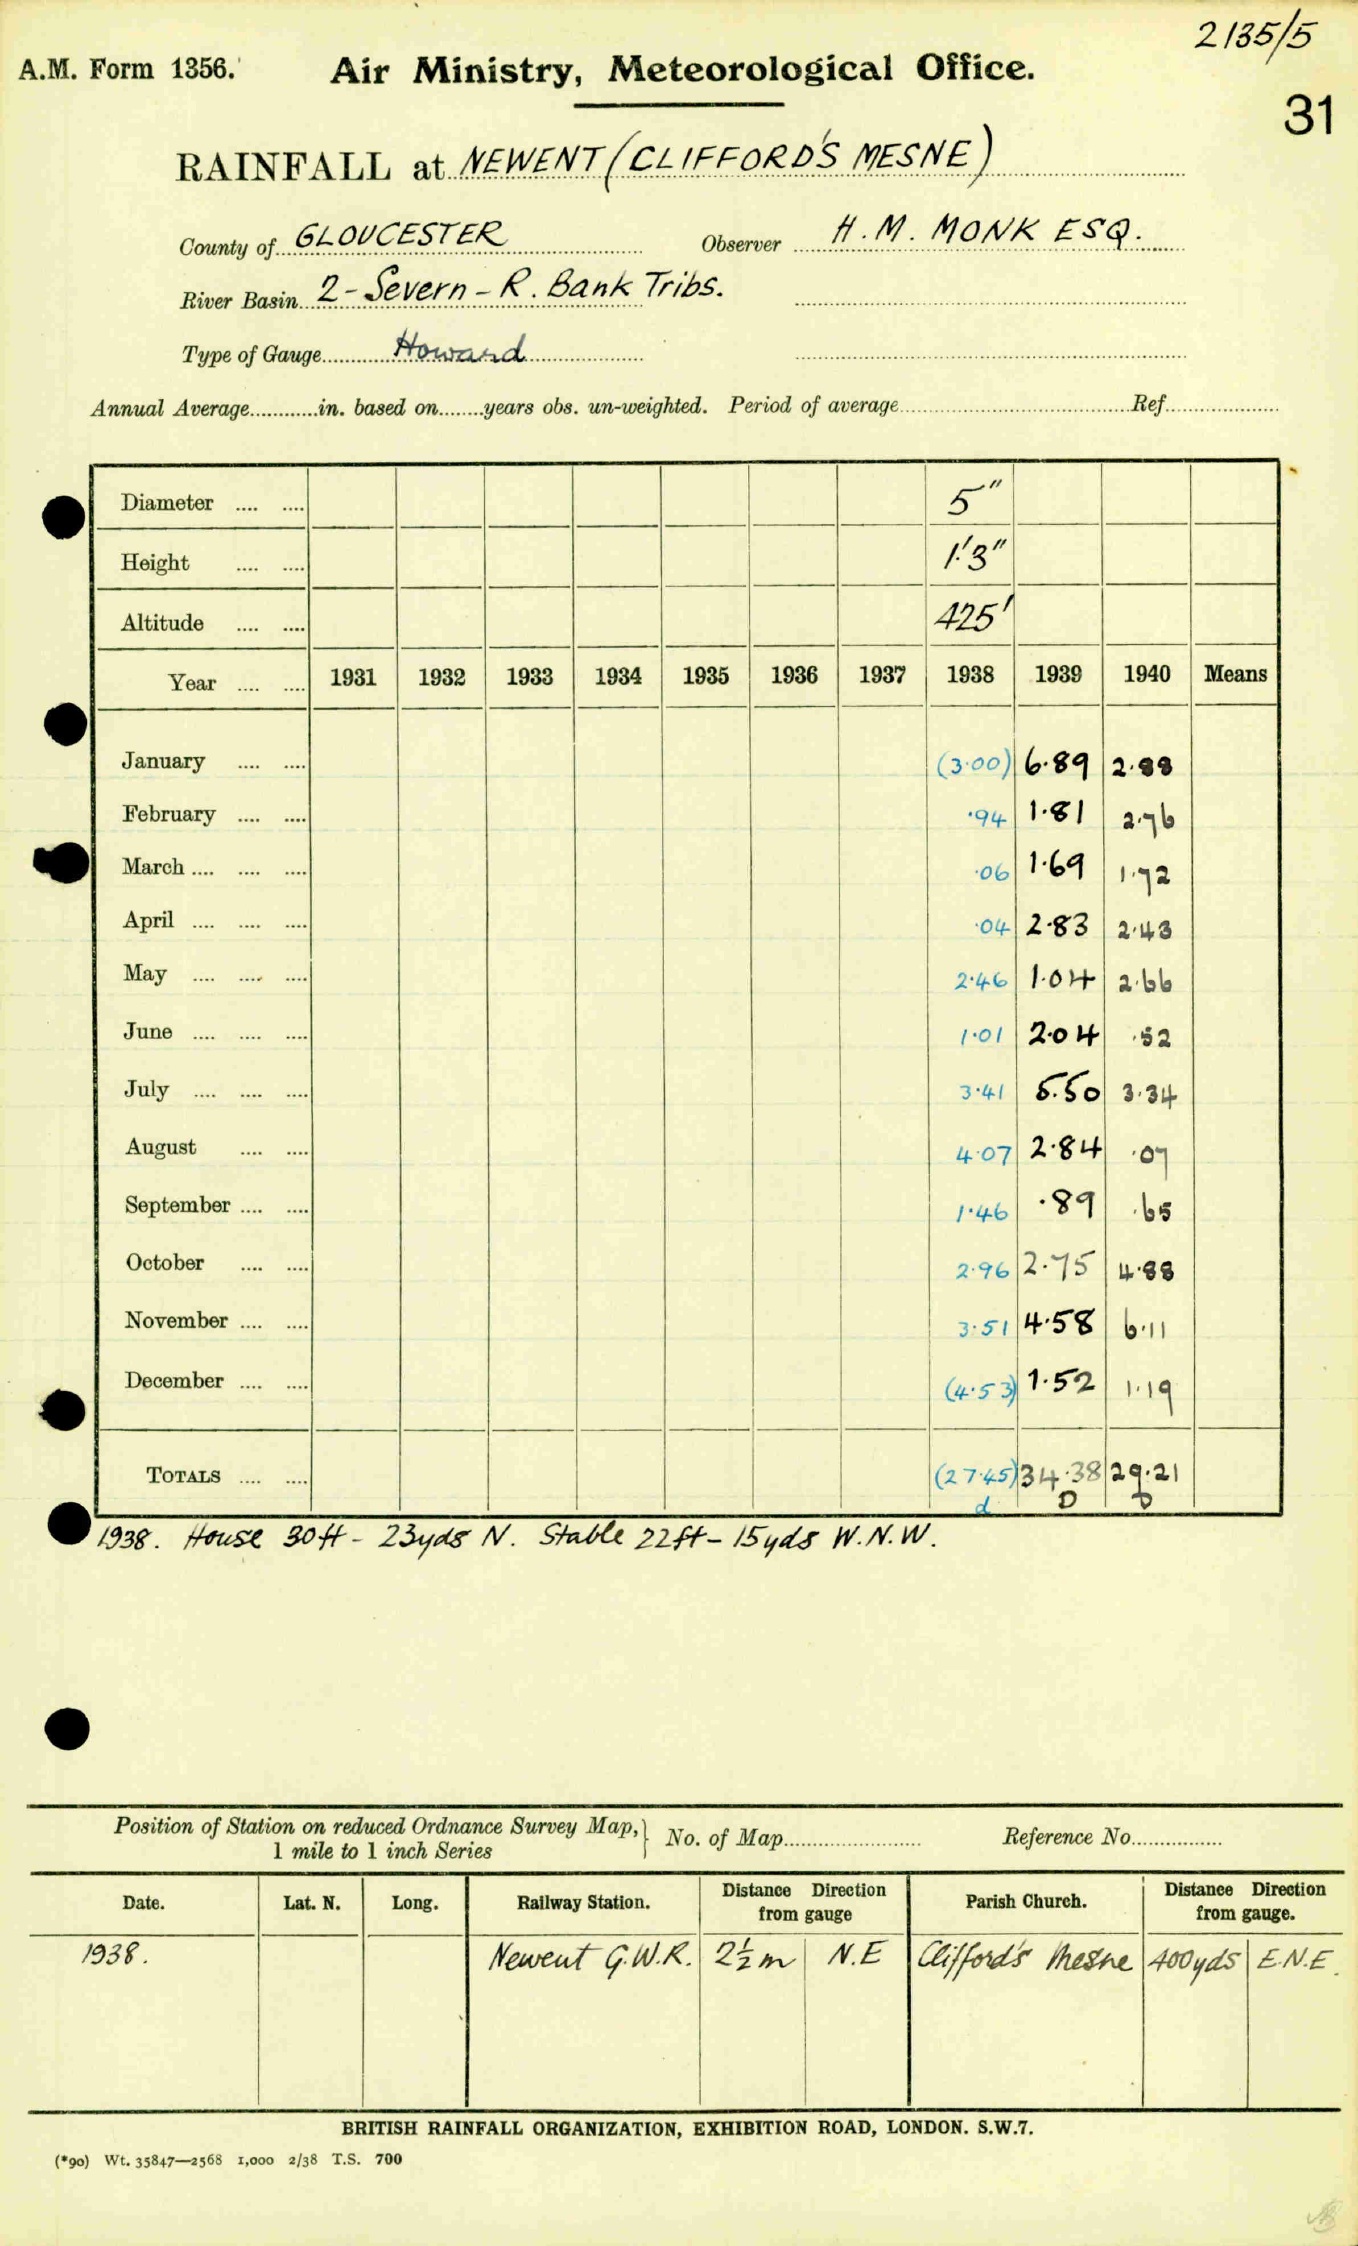 2135/5
A.M. Form 1356. Air Ministry, Meteorological Office.
31
RAINFALL at NEWENT (CLIFFORD'S MESNE)
County of GLOUCESTER Observer H. M. MONK ESQ.
River Basin 2 - Severn - R. Bank Tribs.
Type of Gauge Howard
Annual Average............in. based on........years obs. un-weighted. Period of average........ Ref........
Diameter .... .... 5"
Height .... .... 1'3"
Altitude .... .... 425'
Year .... .... 1931 1932 1933 1934 1935 1936 1937 1938 1939 1940 Means
January .... .... (3·00) 6·89 2·88
February .... .... ·94 1·81 2·76
March .... .... .... ·06 1·69 1·72
April .... .... .... ·04 2·83 2·43
May .... .... .... 2·46 1·04 2·66
June .... .... .... 1·01 2·04 ·52
July .... .... .... 3·41 5·50 3·34
August .... .... 4·07 2·84 ·07
September .... .... 1·46 ·89 ·65
October .... .... 2·96 2·75 4·88
November .... .... 3·51 4·58 6·11
December .... .... (4·53) 1·52 1·19
TOTALS .... .... (27·45) 34·38 29·21
d D D
1938. House 30ft - 23yds N. Stable 22ft - 15yds W.N.W.
Position of Station on reduced Ordnance Survey Map, } No. of Map........ Reference No........
1 mile to 1 inch Series
Date. Lat. N. Long. Railway Station. Distance Direction from gauge Parish Church. Distance Direction from gauge.
1938. Newent G.W.R. 2½ m N.E Clifford's Mesne 400yds E.N.E.
BRITISH RAINFALL ORGANIZATION, EXHIBITION ROAD, LONDON. S.W.7.
(*90) Wt. 35847—2568 1,000 2/38 T.S. 700